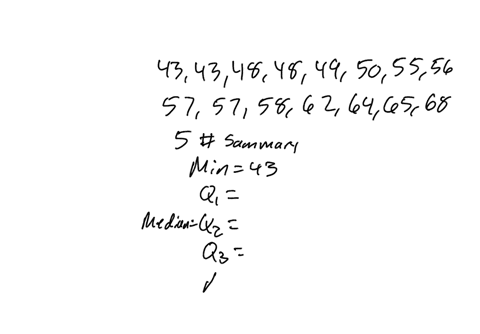 43, 43, 48, 48, 49, 50, 55, 56
57, 57, 58, 62, 64, 65, 68
5 # Summary
Min = 43
Q1 =
Median = Q2 =
Q3 =